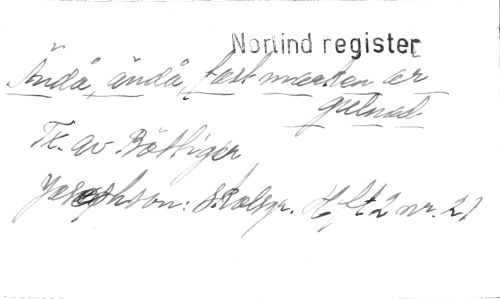 Norlind register
Ändå, ändå, fast marken är
gulnad
Tx. av Böttiger
Josephson: Skolsgr. Hft 2 nr. 21